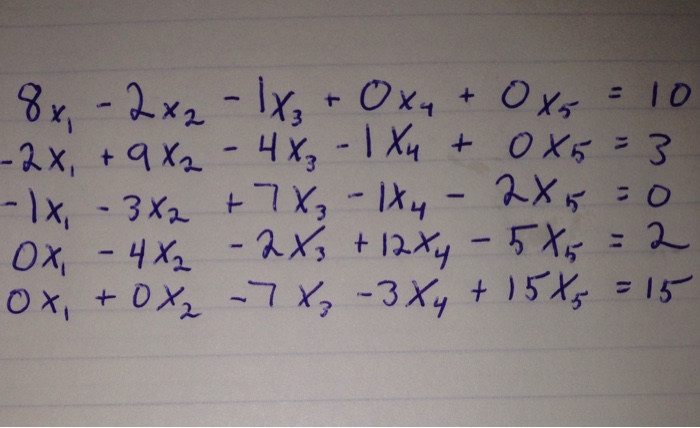 8x₁ - 2x₂ - 1x₃ + 0x₄ + 0x₅ = 10
-2x₁ + 9x₂ - 4x₃ - 1x₄ + 0x₅ = 3
-1x₁ - 3x₂ + 7x₃ - 1x₄ - 2x₅ = 0
0x₁ - 4x₂ - 2x₃ + 12x₄ - 5x₅ = 2
0x₁ + 0x₂ - 7x₃ - 3x₄ + 15x₅ = 15